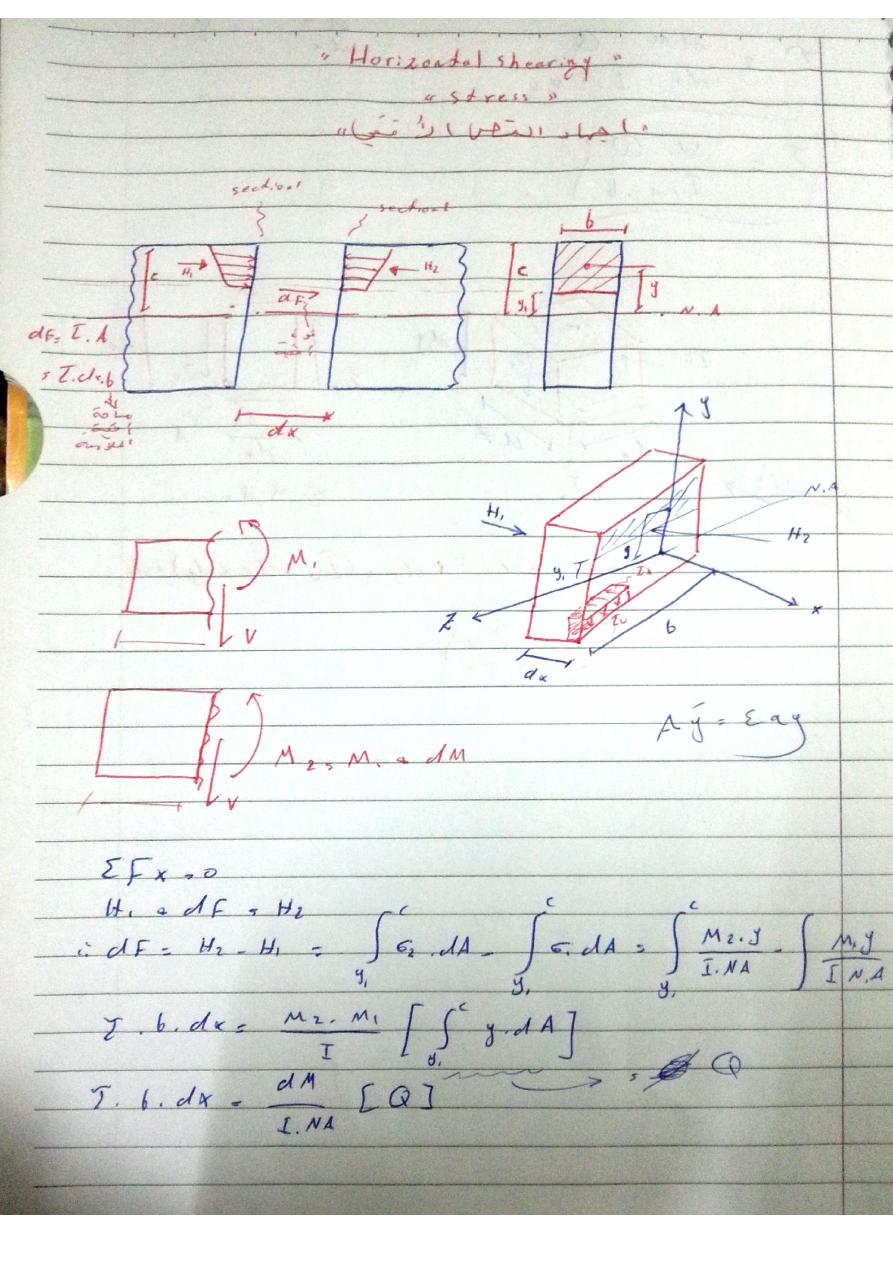 " Horizontal shearing "
" stress "
"اجهاد القص الأفقي"
section 1
section 1
b
c
H₁
H₂
c
y₁
y
N.A
dF
dF = τ.A
= τ.dx.b
dx
y
N.A
H₁
H₂
y
y₁
M₁
V
z
x
b
dx
Aȳ = Σay
M₂ = M₁ + dM
V
ΣFx = 0
H₁ + dF = H₂
∴ dF = H₂ - H₁ = ∫_{y₁}^{c} σ₂.dA - ∫_{y₁}^{c} σ₁ dA = ∫_{y₁}^{c} M₂.y / I.NA - ∫ M₁y / I N.A
τ.b.dx = M₂ - M₁ / I [∫_{y₁}^{c} y.dA]
= Q
τ.b.dx = dM / I.NA [Q]